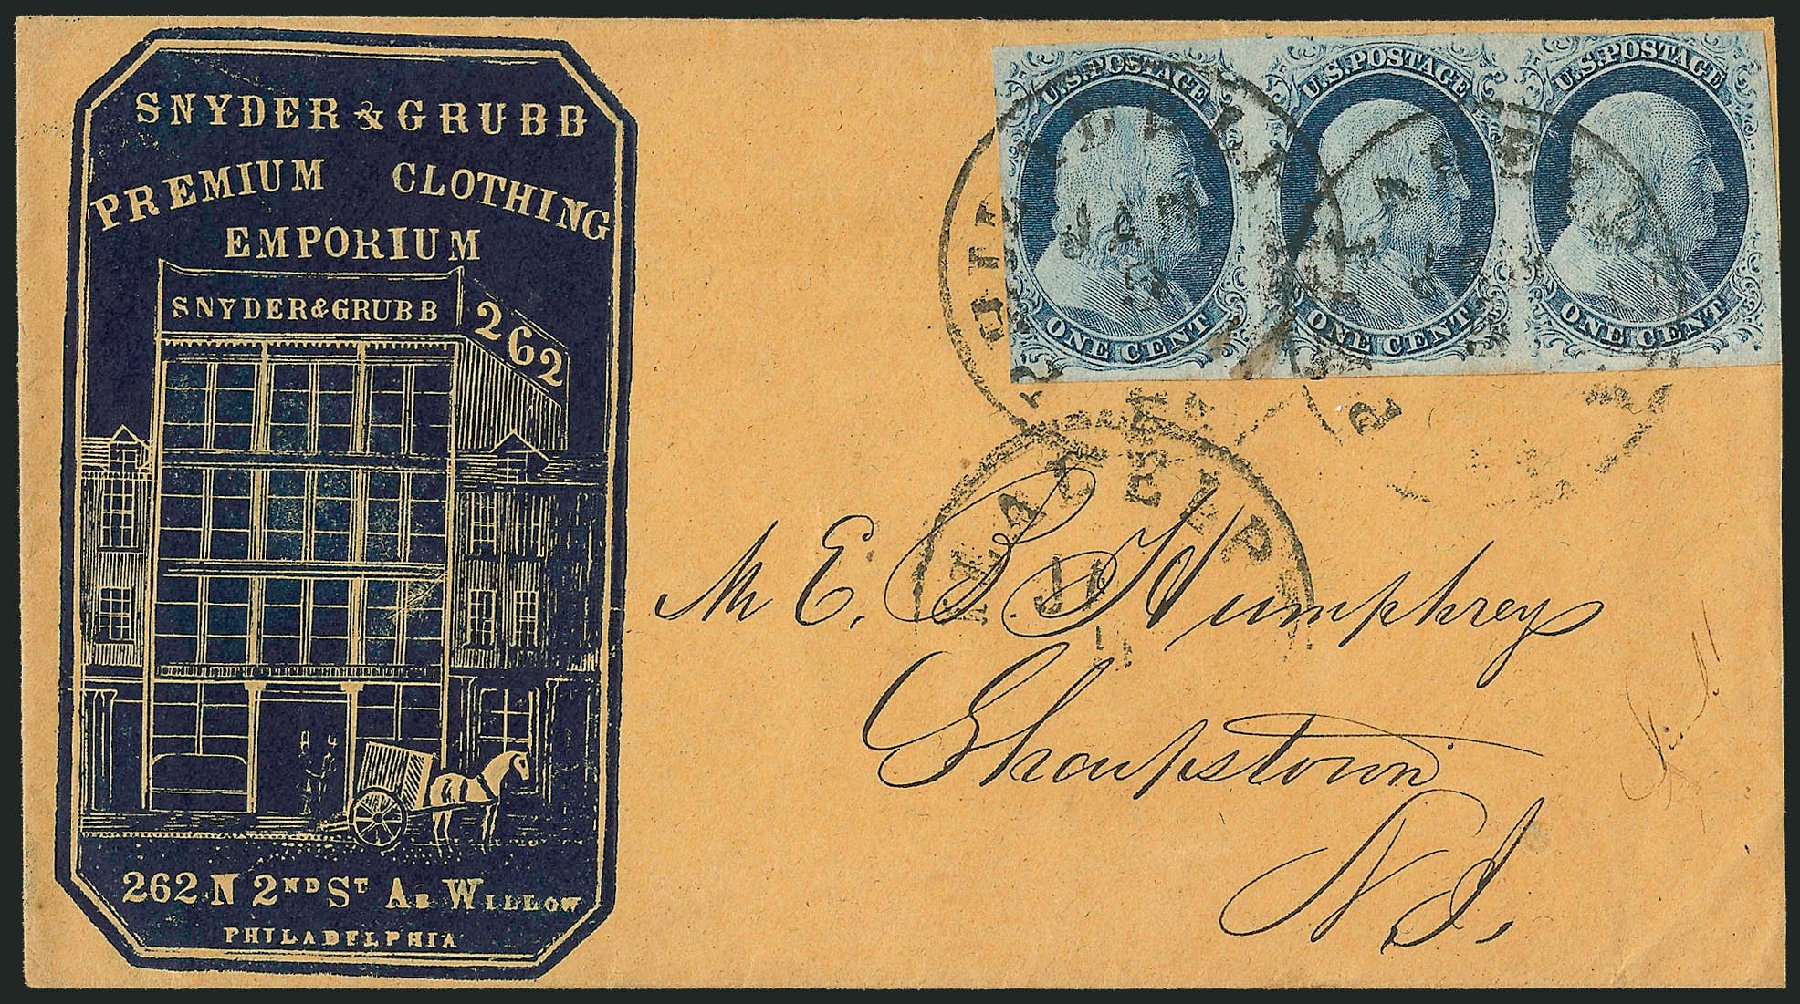 SNYDER & GRUBB
PREMIUM CLOTHING
EMPORIUM
SNYDER & GRUBB
262
262 N 2ND ST AB WILLOW
PHILADELPHIA
U.S. POSTAGE
ONE CENT
U.S. POSTAGE
ONE CENT
U.S. POSTAGE
ONE CENT
JAN
5
M E. P. Humphreys
Sharpstown
N J.